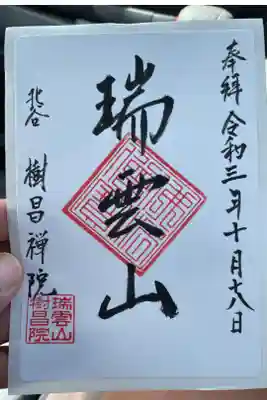 奉拝 令和三年十月十八日
瑞雲山
樹昌禅院
瑞雲山
樹昌院